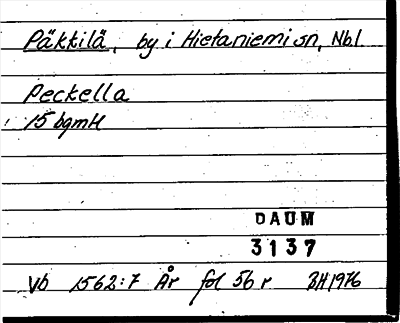 Päkkilä, by i Hietaniemi sn, Nbl.
Peckella
15 bgmH
DAUM
3137
Vb 1562:7 År fol 56 r BH1976